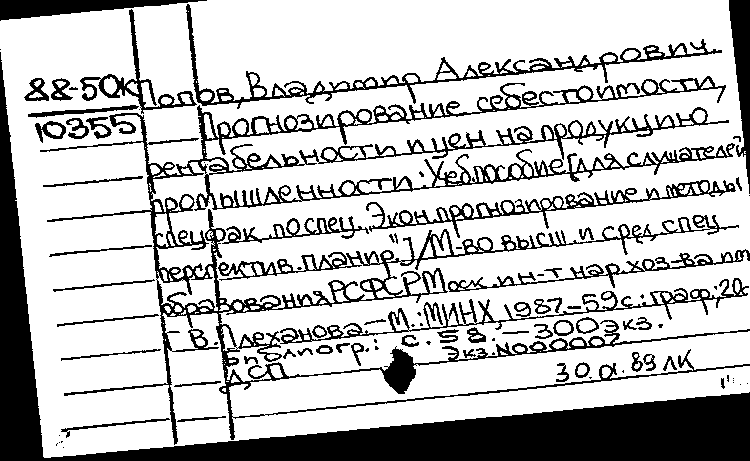 88-50К
10355
Попов, Владимир Александрович.
Прогнозирование себестоимости,
рентабельности и цен на продукцию
промышленности: Учеб. пособие [для слушателей
спецфак. по спец. „Экон. прогнозирование и методы
перспектив. планир."] / М-во высш. и сред. спец.
образования РСФСР, Моск. ин-т нар. хоз-ва им.
Г. В. Плеханова. – М.: МИНХ, 1987. – 59 с.: граф.; 20 с
Библиогр.: с. 58. – 300 экз.
Экз. N000002
ДСП
89 ЛК